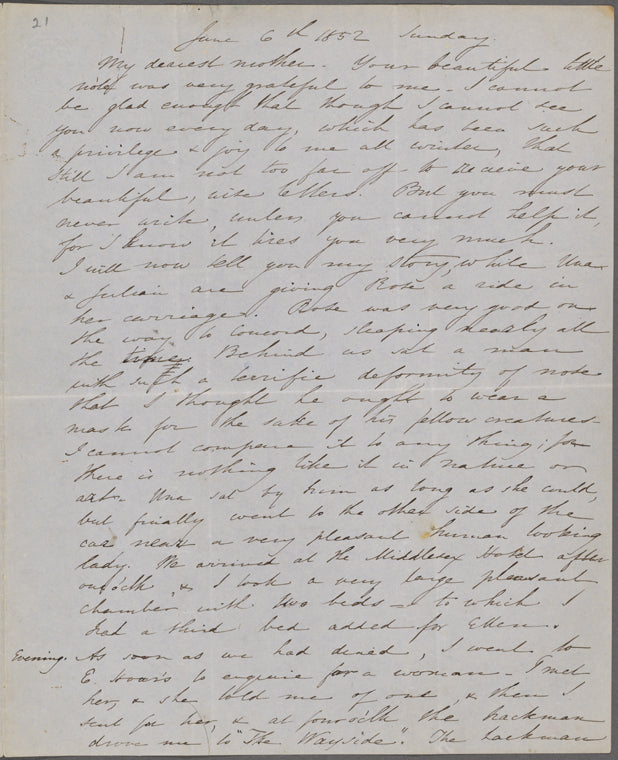 21
June 6th 1852 Sunday.
My dearest mother. Your beautiful little
note was very grateful to me. I cannot
be glad enough that though I cannot see
you now every day, which has been such
a privilege & joy to me all winter, that
still I am not too far off to receive your
beautiful, wise letters. But you must
never write, unless you cannot help it,
for I know it tires you very much.
I will now tell you my story, while Una
& Julian are giving Rose a ride in
her carriage. Rose was very good on
the way to Concord, sleeping nearly all
the time. Behind us sat a man
with such a terrific deformity of nose
that I thought he ought to wear a
mask for the sake of his fellow creatures.
I cannot compare it to any thing; for
there is nothing like it in nature or
art. Una sat by him as long as she could,
but finally went to the other side of the
car near a very pleasant human looking
lady. We arrived at the Middlesex Hotel after
one o'clk, & I took a very large pleasant
chamber with two beds — to which I
had a third bed added for Ellen.
Evening. As soon as we had dined, I went to
E. Hoar's to enquire for a woman. I met
her, & she told me of one, & then I
sent for her, & at four o'clk the hackman
drove me to "The Wayside". The hackman